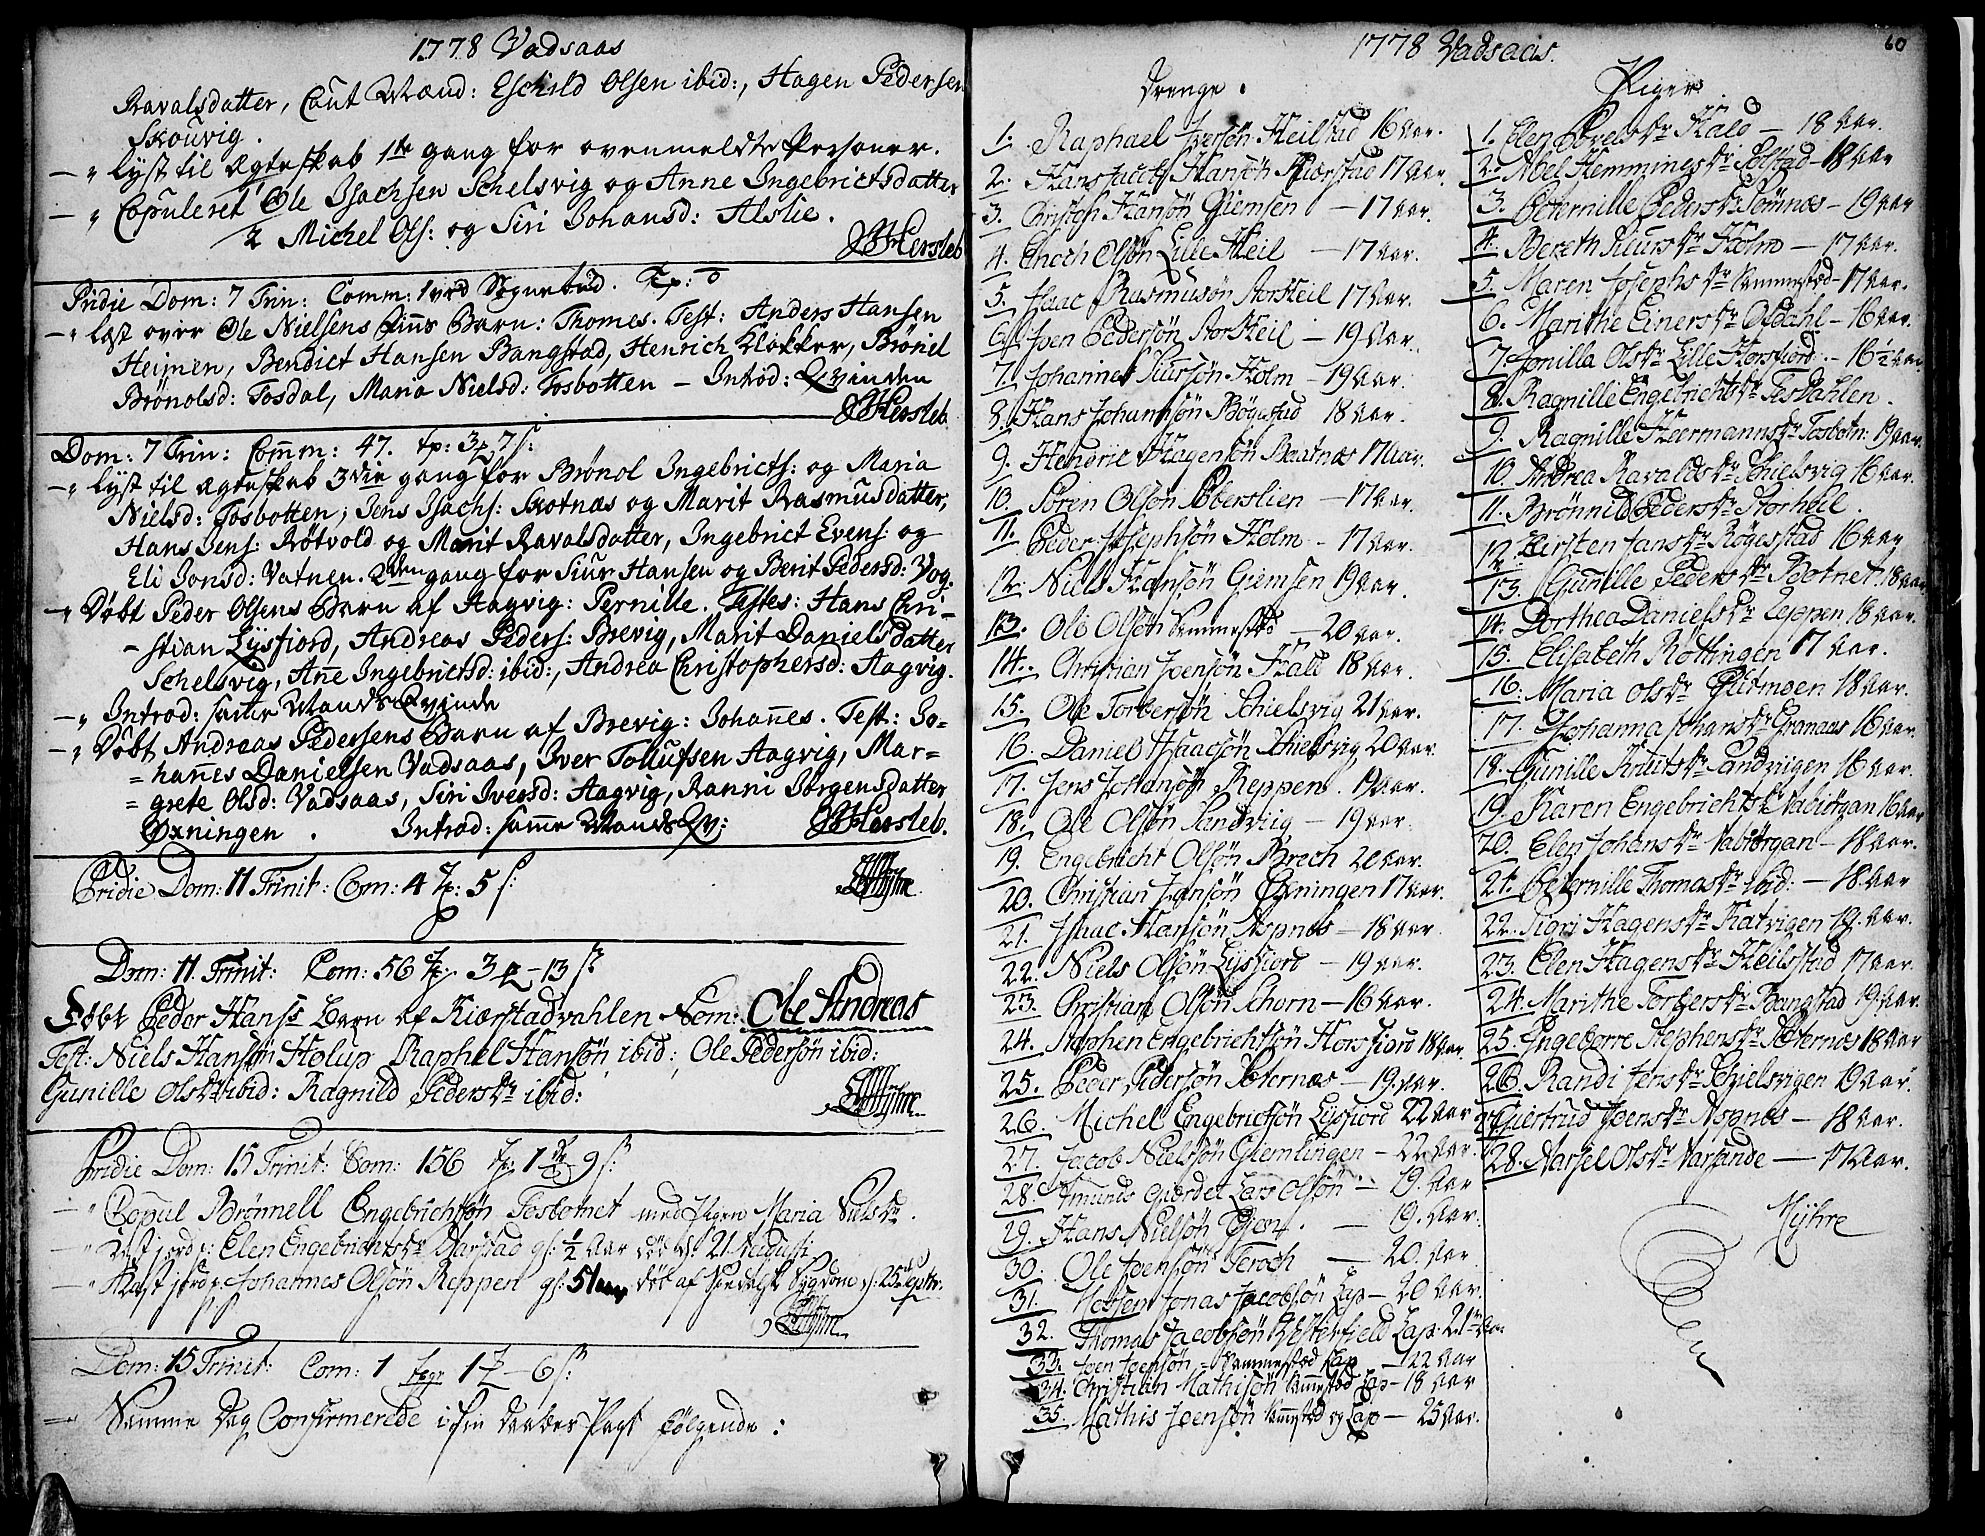 1778 Vadsaas
Ravalsdatter, Caut Mænd: Eschild Olsen ibid:, Hagen Pedersen
Skouvig.
— " Lyst til Ægteskab 1ste gang for ovenmeldte Personer.
— " Copuleret Ole Isachsen Schelsvig og Anne Ingebrictsdatter
2 Michel Ols: og Siri Johansd: Alslie.
Hersleb
Pridie Dom: 7 Trin: Comm: 1 ved Sognebud. Tp: 0
— " Læst over Ole Nielsens Finns Barn: Thomes. Test: Anders Hansen
Heimen, Bendict Hansen Bangstad, Henrich Klokker, Brönel
Brönolsd: Tosdal, Maria Nielsd: Tosbotten — Introd: Qvinden
Hersleb
Dom: 7 Trin: Comm: 47. tp: 3 7 s:
— " Lyst til Ægteskab 3die gang for Brönol Ingebricts: og Maria
Nielsd: Tosbotten; Jens Isachs: Skotnæs og Marit Rasmusdatter,
Hans Jens: Rötvold og Marit Ravalsdatter, Ingebrict Evens: og
Eli Jonsd: Vatnen. 2den gang for Siur Hansen og Berit Pedersd: Vog.
— " Döbt Peder Olsens Barn af Aagvig: Pernille. Testes: Hans Chri-
- stian Lysfiord, Andreas Peders: Brevig, Marit Daniels datter
Schelsvig, Añe Ingebrictsd: ibid:, Andrea Christophersd: Aagvig.
— " Introd: samme Mands Qvinde
— " Döbt Andreas Pedersens Barn af Brevig: Johañes. Test: Jo-
= hañes Danielsen Vadsaas, Iver Tollufsen Aagvig, Mar=
= grete Olsd: Vadsaas, Siri Iversd: Aagvig, Ranni Jörgensdatter
Öxningen. Introd: samme Mands Qv: Hersleb.
Pridie Dom: 11 Trinit: Com: 4 Tp: 5 s:
Myhre
Dom: 11 Trinit: Com: 56 Tp 3 — 13 s:
Döbt Peder Hans: Barn af Kiærstadvahlen Nom: Ole Andreas
Test: Niels Hansön Holup Raphel Hansön, ibid:, Ole Pedersön ibid:
Gunille Olsdr ibid: Ragnild Pedersdr ibid:
Myhre
Pridie Dom: 15 Trinit: Com: 156 Tp: 1 9 s:
— " Copul Brönnell Engebrichtsön Tosbotnet med Pigen Maria Nielsdr.
— " Kast jord p: Elen Engebrichtsdr Aarstad gl: 1/2 Aar död d: 21 Augusti
— " Kast jord p: Johannes Olsön Reppen gl: 51 aar död af Sygdom d: 25 Septr.
Myhre
Dom: 15 Trinit: Com: 1 1 — 6 s:
— Samme Dag Confirmerede i sin daabes Pagt følgende:
1778 Vadsaas.
60
Drenge.
1. Raphael Iversön Heilstad 16 Aar.
2. Hans Jacob Hansön Kiærstad 17 Aar.
3. Christph Hansön Giemsen — 17 aar.
4. Enoch Olsön Lille Heil — 17 Aar.
5. Isaac Rasmusön StorHeil 17 Aar.
6. Joen Pedersön StorHeil — 19 Aar.
7. Johannes Siursön Holm — 19 Aar.
8. Hans Johansön Bögestad 18 Aar.
9. Hendric Hagensön Baatnæs 17 Aar.
10. Sören Olsön Oberslien — 17 Aar.
11. Peder Josephsön Holm — 17 Aar.
12. Niels Hansön Giemsen 19 Aar.
13. Ole Olsön Vemmestad — 20 Aar.
14. Christian Joensön Hald 18 Aar.
15. Ole Torbersön Schielsvig 21 Aar.
16. Daniel Isaacsön Schielsvig 20 Aar.
17. Jens Johansön Reppen. 19 Aar.
18. Ole Olsön Sandviig — 19 Aar.
19. Engebricht Olsön Brech 20 Aar.
20. Christian Jansön Öxningen 17 Aar.
21. Isaac Hansön Aspnes — 18 Aar.
22. Niels Olsön Lysfiord — 19 Aar.
23. Christian Olsön Schorn — 16 Aar.
24. Stephen Engebrichtsön Horsfiord 18 Aar.
25. Peder Pedersön Sæternæs — 19 Aar.
26. Michel Engebrictsön Lysfiord 22 Aar
27. Jacob Nielsön Giemlingen — 22 Aar.
28. Amunds Gierdet Lars Olsön — 19 Aar
29. Hans Nielsön — 19. Aar.
30. Ole Joensön Teroch — 20. Aar
31. Mossen Jonas Jacobsön Lap — 20 Aar.
32. Thomas Jacobsön Westerfield Lap: 21 Aar
33. Joen Joensön, Vemmestad Lap — 22 Aar
34. Christian Mathisön Vemmestad Lap — 18 Aar
35. Mathis Joensön Vemmestad og Lap — 25 Aar.
Piger
1. Elen Povelsdr Hald — 18 Aar.
2. Abel Hemmingsdr Solstad — 18 Aar
3. Peternille Pedersdr Sömnæs — 19 Aar
4. Bereth Siursdr Holm — 17 Aar.
5. Maren Josephsdr Vemmestad — 17 Aar.
6. Marithe Einersdr Opdahl — 16 Aar.
7. Jonilla Olsdr Lille Horsfiord — 16 1/2 Aar
8. Ragnille Engebrichtsdr Tosdahlen.
9. Ragnille Heermannsdr Tosbotn: 19 Aar
10. Andrea Ravaldsdr Schielsvig 16 Aar.
11. Brönnild Pedersdr Storheil.
12. Kirsten Jansdr Bögestad 16 Aar
13. Gunille Pedersdr Botnet. 18 Aar
14. Dorthea Danielsdr Reppen 18 Aar.
15. Elisabeth Röttingen 17 Aar.
16. Maria Olsdr Plitmoen 18 Aar.
17. Johanna Johansdr Granaas 16 Aar.
18. Gunille Knutsdr Sandvigen 16 Aar.
19. Karen Engebrichtsdr Nabiörgan 16 Aar
20. Elen Johansdr Nabiörgan — 18 Aar.
21. Peternille Thomasdr ibid: — 18 Aar
22. Sigri Hagensdr Hatvigen 19. Aar.
23. Elen Hagensdr Heilstad 17 Aar.
24. Marithe Torbersdr Bangstad 19 Aar
25. Ingeborre Stephensdr Sæternæs 18 Aar
26. Randi Jensdr Schielsvigen 19 Aar
27. Giertrud Joensdr Aspnæs — 18 Aar.
28. Aarsel Olsdr Varsunde — 17 Aar.
Myhre